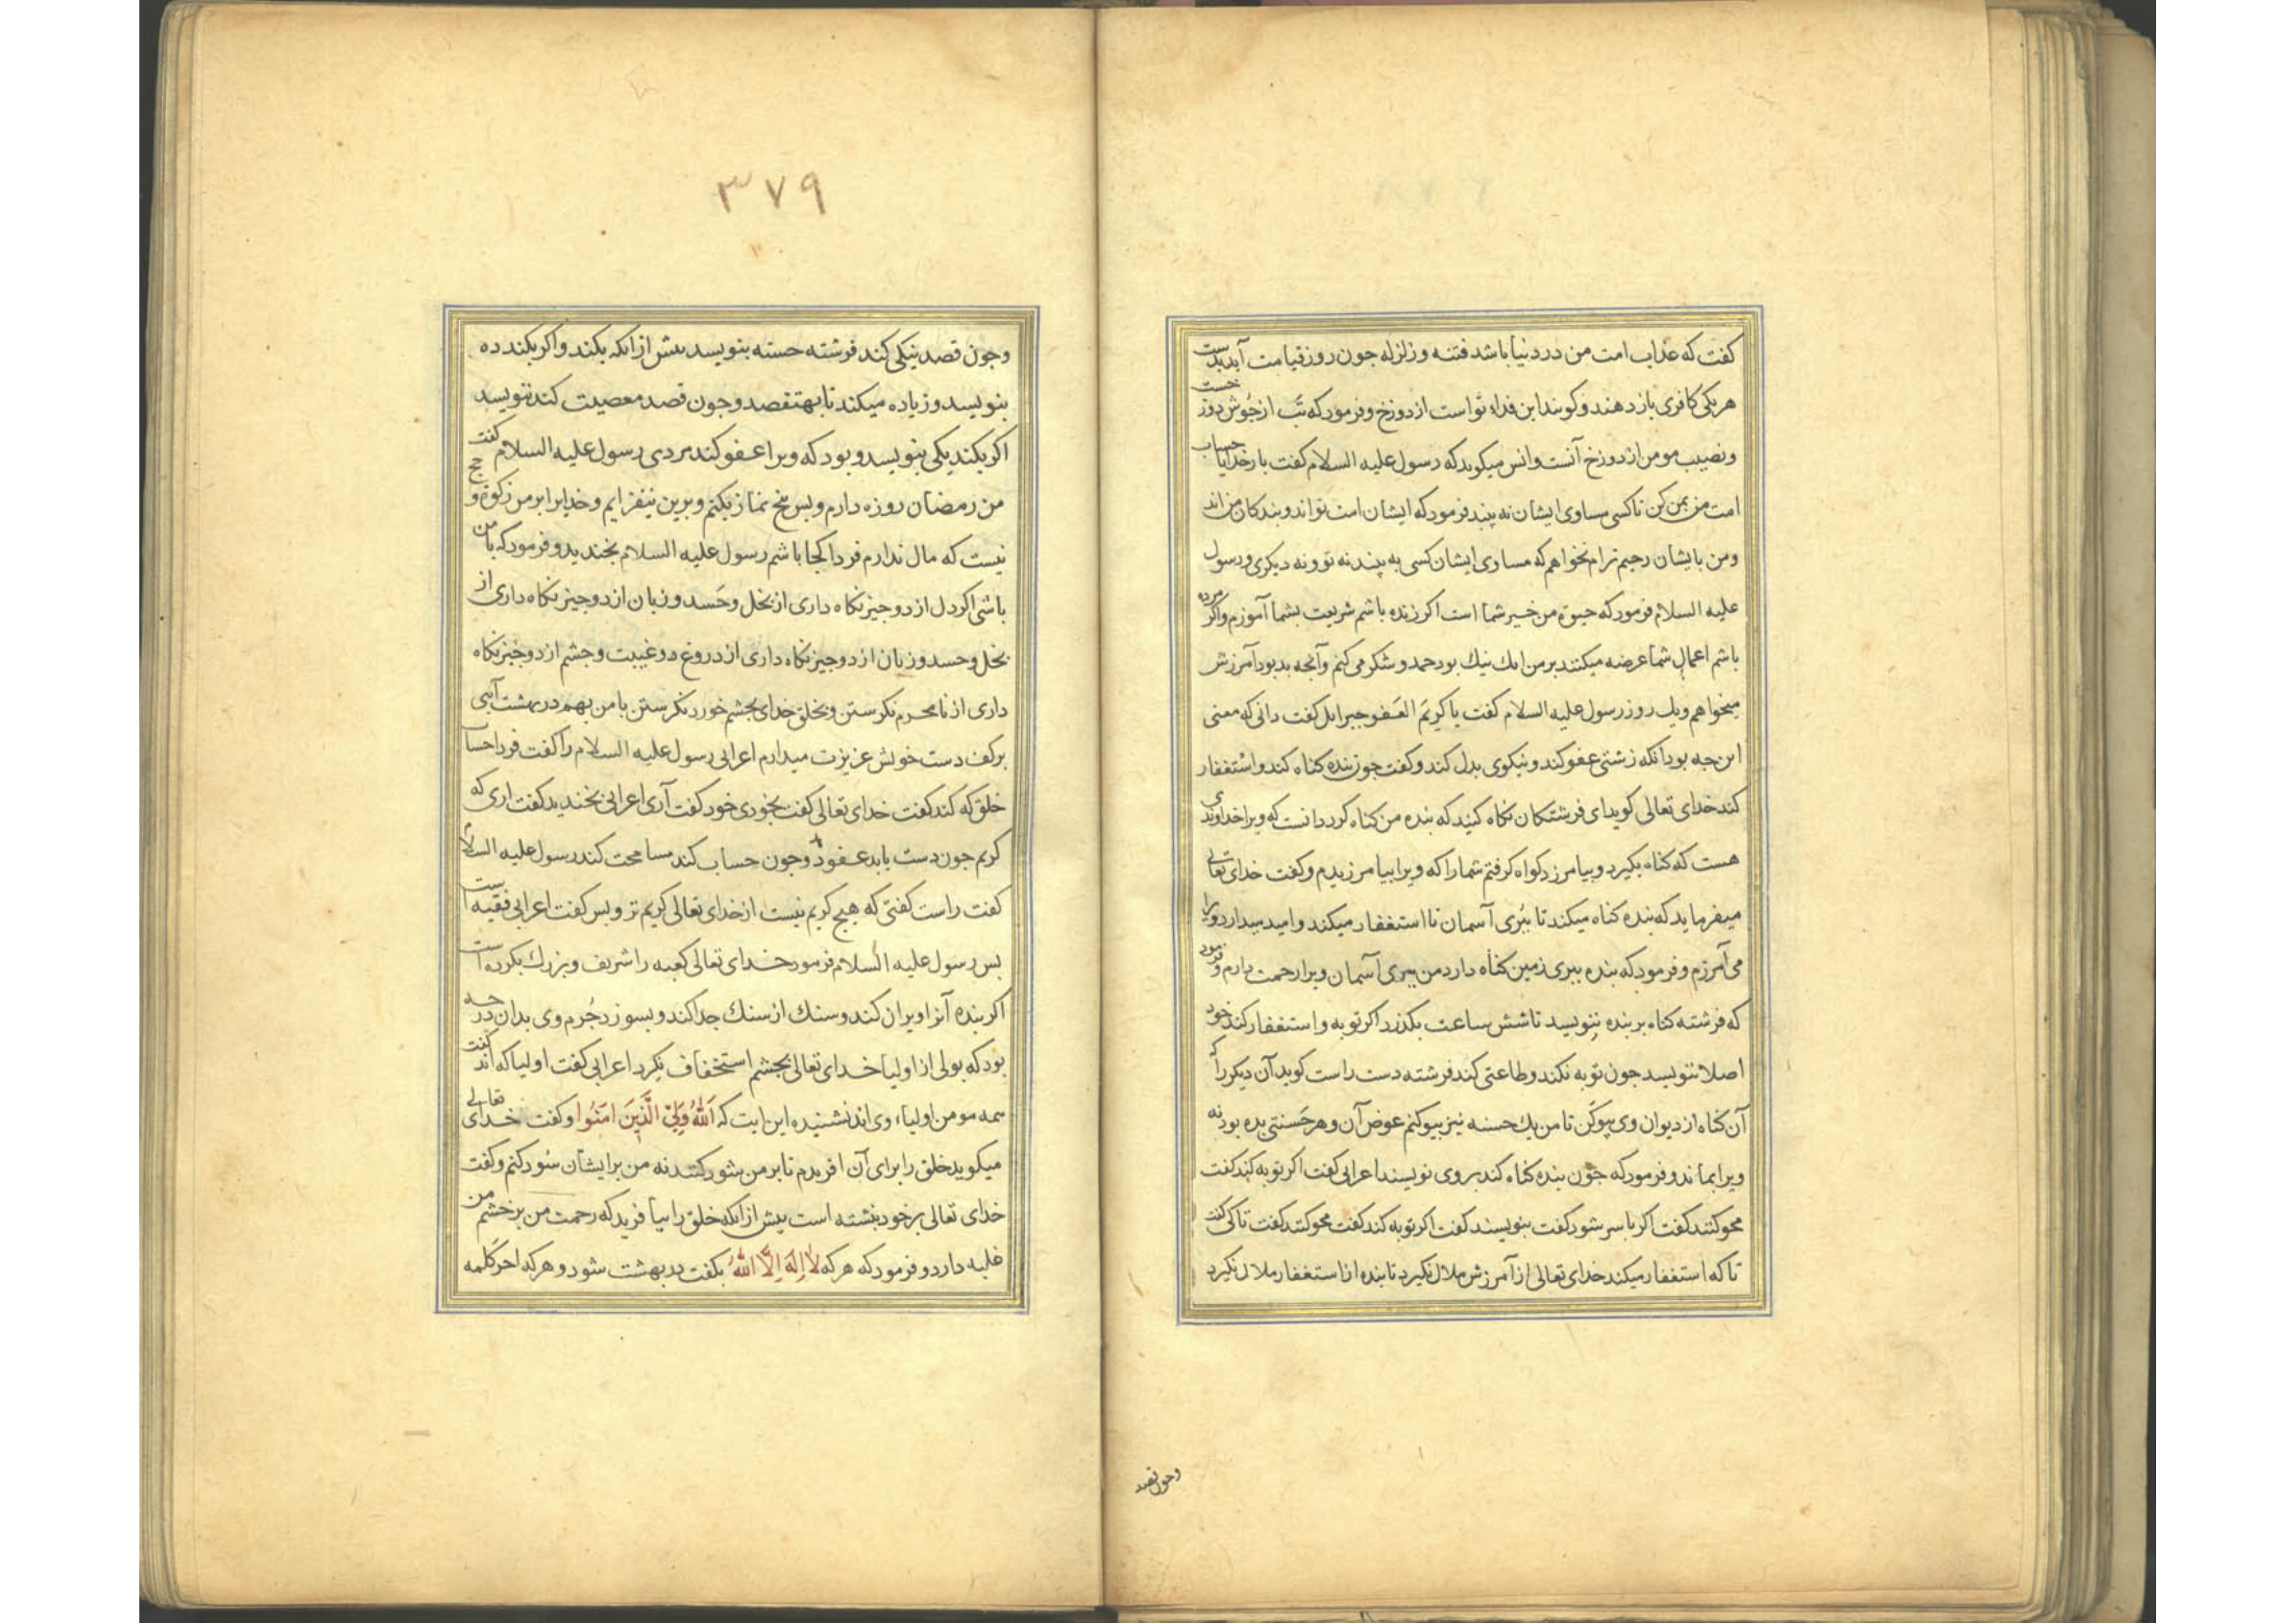 كفت كه عذاب امت من در دنيا باشد فتنه و زلزله جون روز قيامت آيد بدست
هر يكى كافرى باز دهند و كويند اين فداء تو است از دوزخ و فرمود كه تب از جوش دوزخست
و نصيب مومن از دوزخ آنست و انس ميكويد كه رسول عليه السلام كفت بار خدايا حساب
امت من بمن كن تا كسى مساوى ايشان نه بيند فرمود كه ايشان امت تواند و بندكان من اند
و من بايشان رحيم ترام نخواهم كه مساوى ايشان كسى به بيند نه تو و نه ديكرى و رسول
عليه السلام فرمود كه حيوة من خير شما است اكر زنده باشم شريعت بشما آموزم و اكر مرده
باشم اعمال شما عرضه ميكنند بر من انك نيك بود حمد و شكر مى كنم و آنجه بد بود آمرزش
ميخواهم و يك روز رسول عليه السلام كفت يا كريم العفو جبرايل كفت دانى كه معنى
اين جه بود انكه زشتى عفو كند و بنيكوى بدل كند و كفت جون بنده كناه كند و استغفار
كند خداى تعالى كويد اى فرشتكان نكاه كنيد كه بنده من كناه كرد دانست كه ويرا خداوندى
هست كه كناه بكيرد و بيامرزد كواه كرفتم شما را كه ويرا بيامرزيدم و كفت خداى تعالى
ميفرمايد كه بنده كناه ميكند تا ببرى آسمان تا استغفار ميكند و اميد ميدارد ويرا
مى آمرزم و فرمود كه بنده ببرى زمين كناه دارد من ببرى آسمان ويرا رحمت دارم و فرمود
كه فرشته كناه بر بنده ننويسد تا شش ساعت بكذرد اكر توبه و استغفار كند خود
اصلا ننويسد جون توبه نكند و طاعتى كند فرشته دست راست كويد آن ديكر را كه
آن كناه از ديوان وى بيوكن تا من يك حسنه نيز بيوكنم عوض آن و هر حسنتى بده بود نه
ويرا بماند و فرمود كه جون بنده كناه كند بر وى نويسند اعرابى كفت اكر توبه كند كفت
محو كنند كفت اكر با سر شود كفت بنويسند كفت اكر توبه كند كفت محو كنند كفت تا كى كفت
تا كه استغفار ميكند خداى تعالى از آمرزش ملال نكيرد تا بنده از استغفار ملال نكيرد
وجون قصد
٣٧٩
وجون قصد نيكى كند فرشته حسنه بنويسد بيش از انكه بكند و اكر بكند ده
بنويسد و زياده ميكند تا بهتفصد و جون قصد معصيت كند ننويسد
اكر بكند يكى بنويسد و بود كه ويرا عفو كند مردى رسول عليه السلام كفت
من رمضان روزه دارم و بس پنج نماز بكنم و برين نيفزايم و خدايرا بر من زكوة و حج
نيست كه مال ندارم فردا كجا باشم رسول عليه السلام بخنديد و فرمود كه با من
باشى اكر دل از دو جيز نكاه دارى از بخل و حسد و زبان از دو جيز نكاه دارى از
بخل و حسد و زبان از دو جيز نكاه دارى از دروغ و غيبت و جشم از دو جيز نكاه
دارى از نا محرم نكرستن و بخلق خداى بجشم خورد نكرستن با من بهم در بهشت آيى
بر كف دست خويش عزيزت ميدارم اعرابى رسول عليه السلام را كفت فردا حساب
خلق كه كند كفت خداى تعالى كفت بخودى خود كفت آرى اعرابى بخنديد كفت ارى كه
كريم جون دست يابد عفود و جون حساب كند مسامحت كند رسول عليه السلام
كفت راست كفتى كه هيج كريم نيست از خداى تعالى كريم تر و بس كفت اعرابى فقيه است
بس رسول عليه السلام فرمود خداى تعالى كعبه را شريف و بزرك بكرده است
اكر بنده آنرا ويران كند و سنك از سنك جدا كند و بسوزد جرم وى بدان درجه
بود كه بولى از اوليا خداى تعالى بجشم استخفاف نكرد اعرابى كفت اوليا كه اند كفت
همه مومن اولياء وى اند نشنيده اين ايت كه اَللّٰهُ وَلِىُّ الَّذِينَ اٰمَنُوا و كفت خداى تعالى
ميكويد خلق را براى آن افريدم تا بر من سود كنند نه من بر ايشان سود كنم و كفت
خداى تعالى بر خود بنشته است بيش از انكه خلق را بيافريد كه رحمت من بر خشم من
غلبه دارد و فرمود كه هر كه لا اِلٰهَ اِلَّا اللّٰهُ بكفت بد بهشت شود و هر كه اخر كلمه